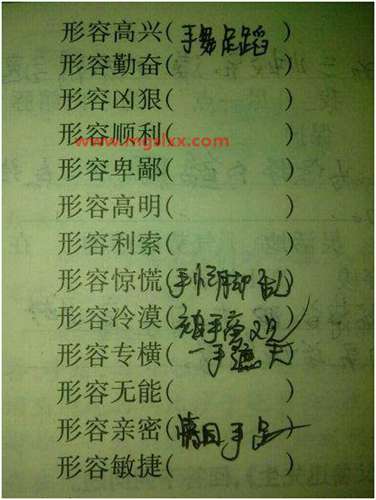 形容高兴(手舞足蹈)
形容勤奋( )
形容凶狠( )
形容顺利( )
www.mgslxx.com
形容卑鄙( )
形容高明( )
形容利索( )
形容惊慌(手忙脚乱)
形容冷漠(袖手旁观)
形容专横(一手遮天)
形容无能( )
形容亲密(情同手足)
形容敏捷( )